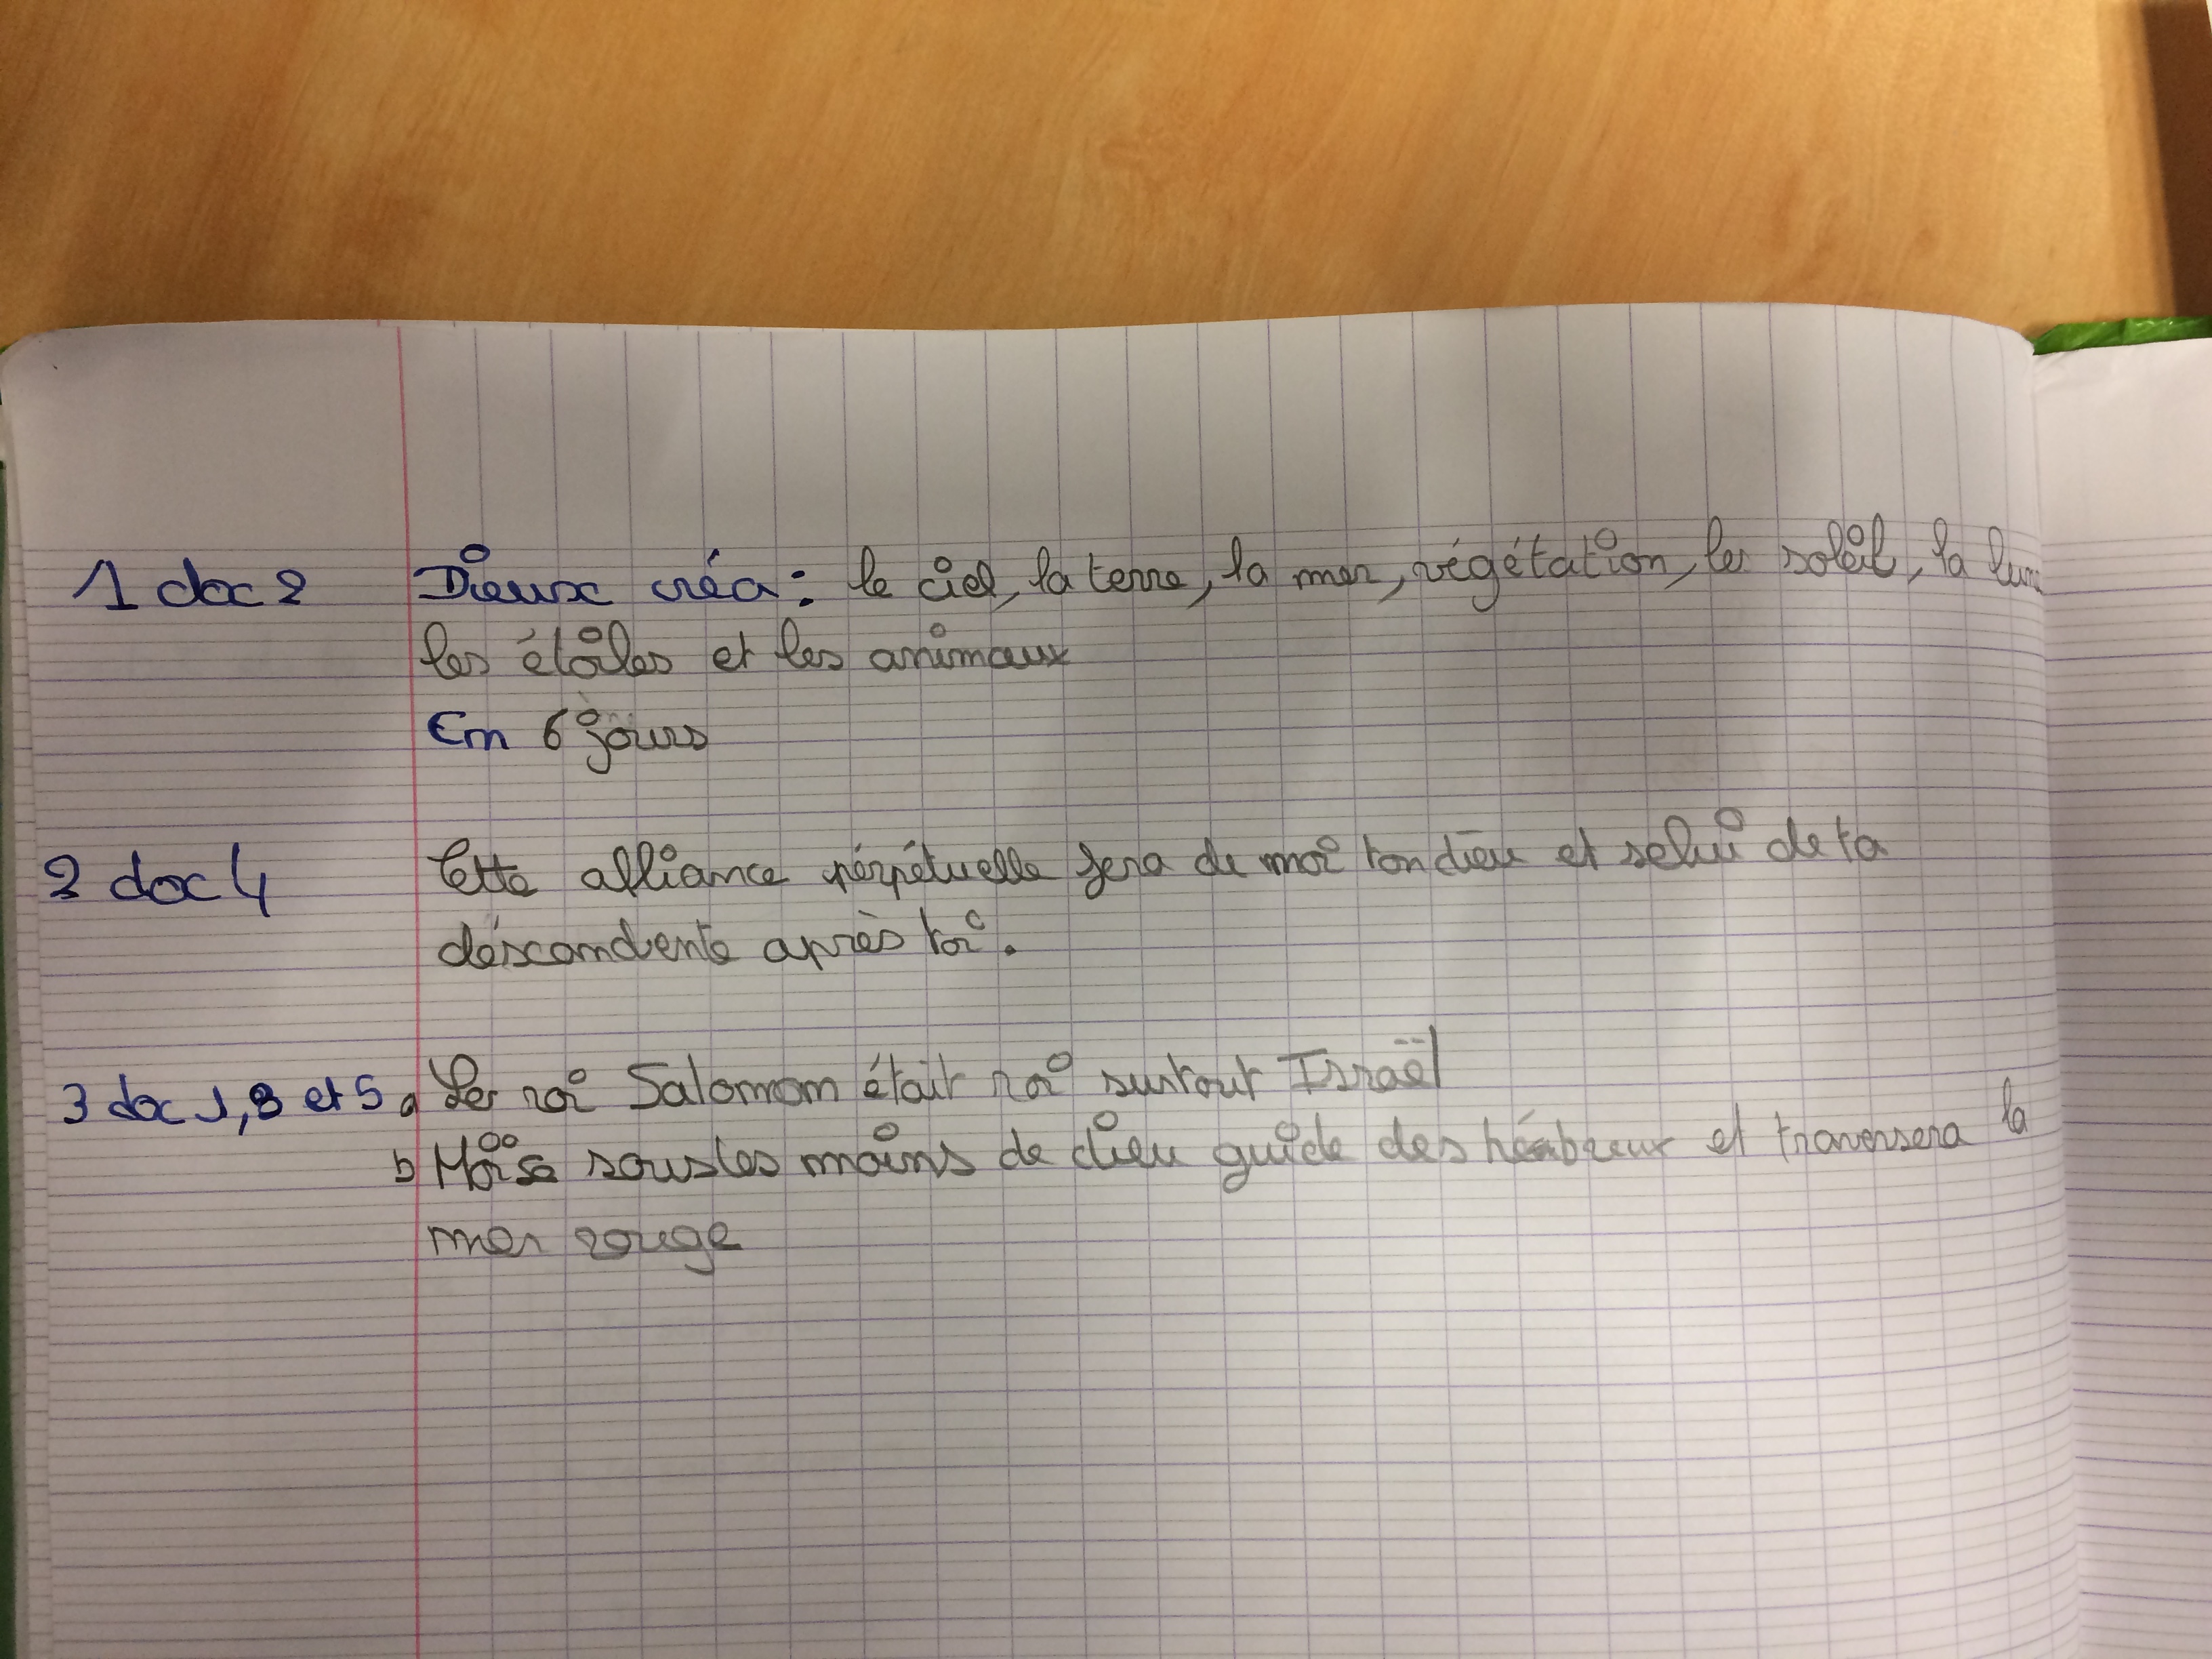 1 doc 2 Dieux créa : le ciel, la terre, la mer, végétation, le soleil, la lune
les étoiles et les animaux
En 6 jours
2 doc 4 Cette alliance pérpétuelle fera de moi ton dieu et selui de ta
déscandente après toi.
3 doc 1, 3 et 5 a Le roi Salomom était roi surtout Israël
b Moïse sous les mains de dieu guide des hébreux et traversera la
mer rouge